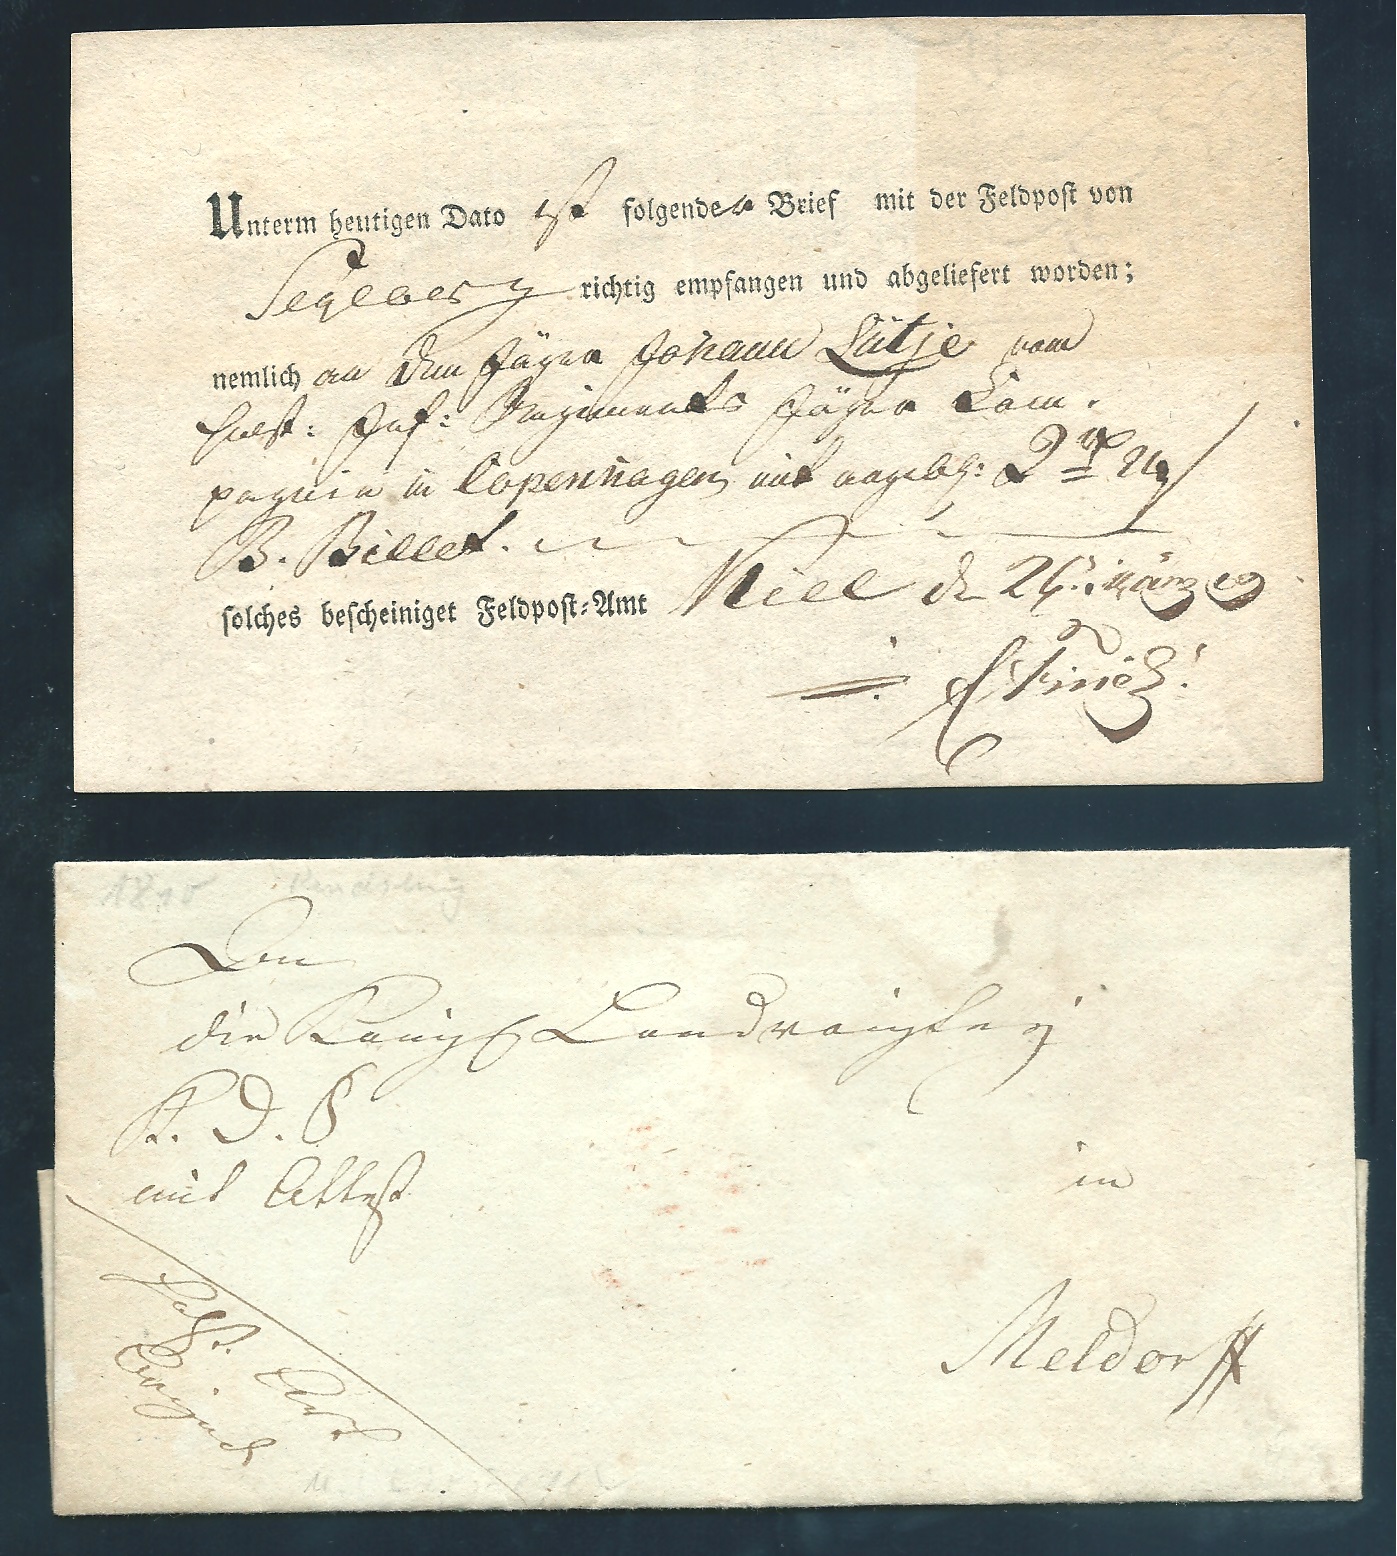 Unterm heutigen Dato ist folgender Brief mit der Feldpost von
Segeberg richtig empfangen und abgeliefert worden;
nemlich an den Jäger Johann Lütje vom
Holst: Inf: Regiments Jäger Com-
pagnie in Copenhagen mit angebl:
B. Billet.
solches bescheiniget Feldpost-Amt Kiel d 26. März
1810 Rendsburg
An
die Königl Landvoigtey
K. D. S
mit Attest
in
Meldorff